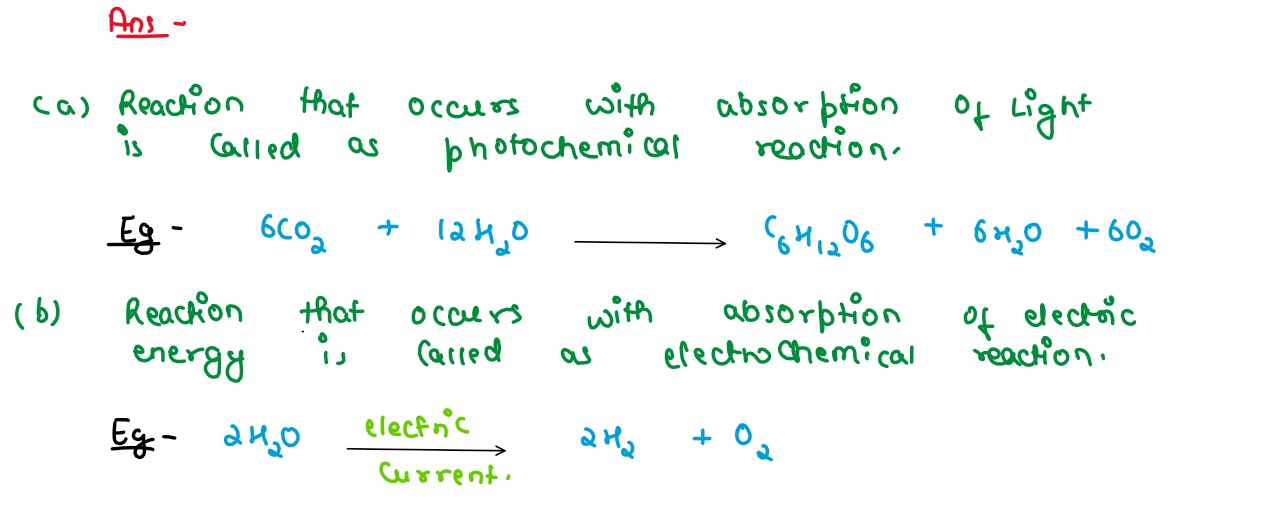 Ans -
(a) Reaction that occurs with absorption of Light
is Called as photochemical reaction.
Eg - 6CO₂ + 12H₂O ⟶ C₆H₁₂O₆ + 6H₂O + 6O₂
(b) Reaction that occurs with absorption of electric
energy is Called as electrochemical reaction.
electric
Eg - 2H₂O ⟶ 2H₂ + O₂
Current.